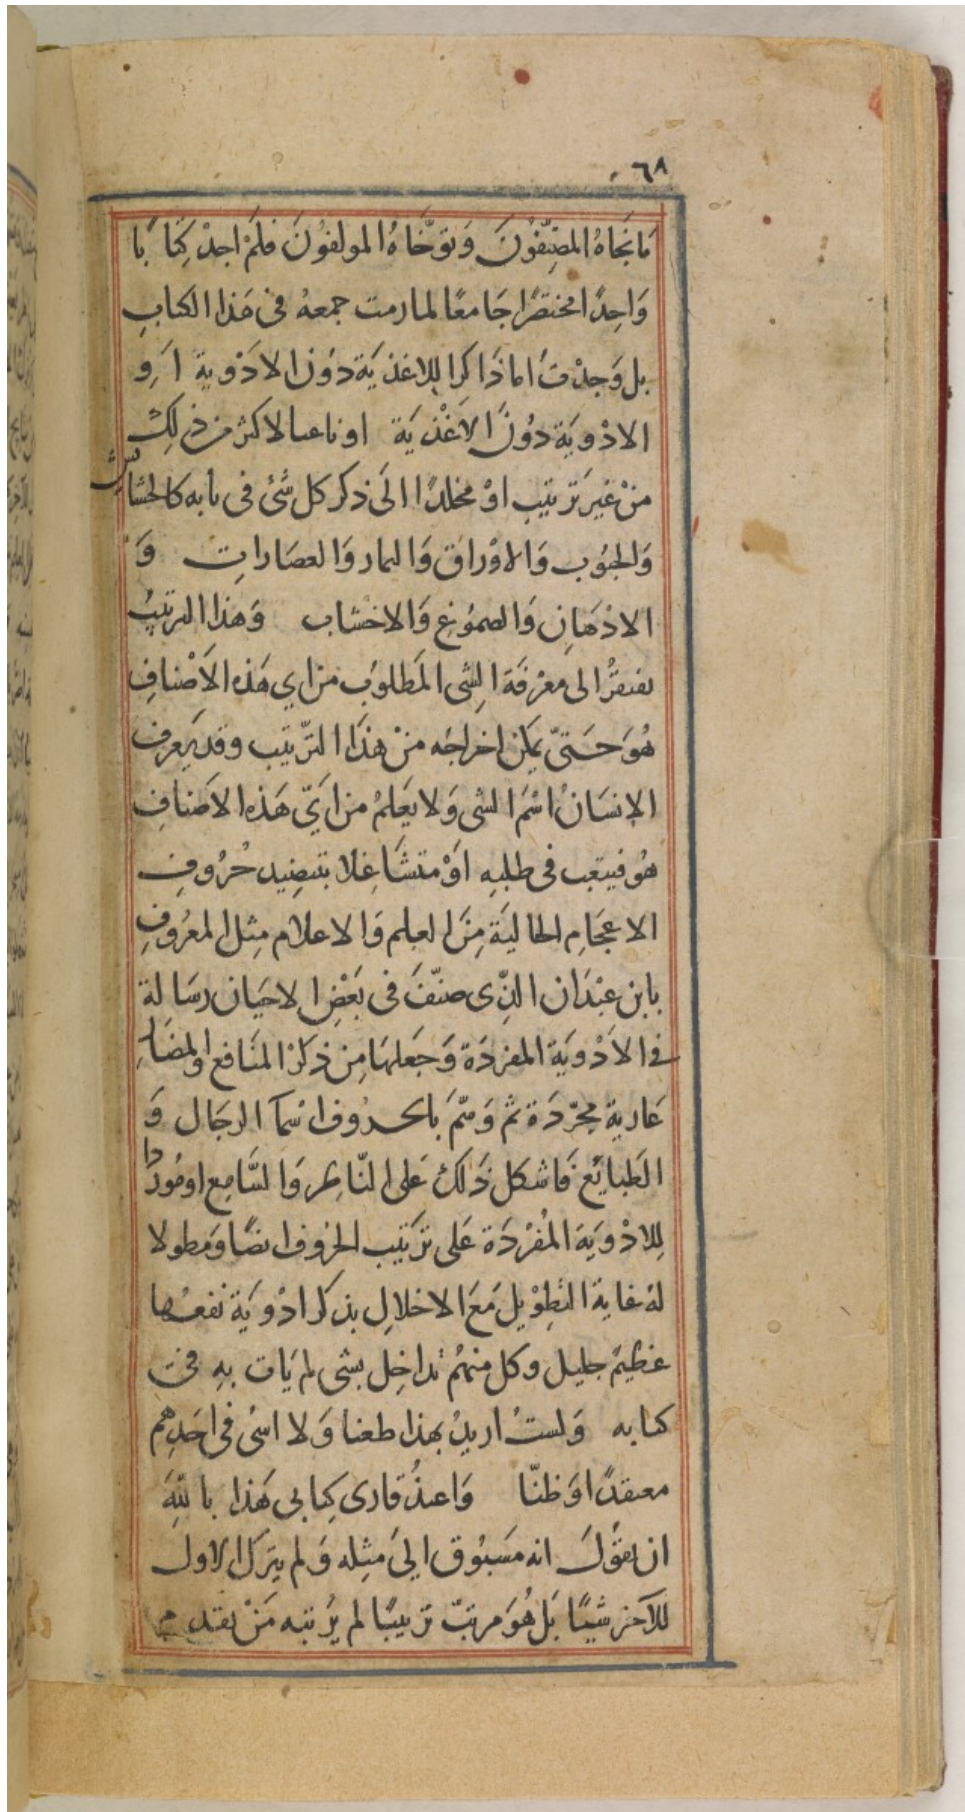 ٦٨
مَا نَحَاهُ المصَنِّفُونَ وَتوَخَّاهُ المولفُونَ فلَمْ اجدْ كِتَابًا
وَاحِدًا مختصَرًا جَامعًا لما رمت جمعهُ فى هَذا الكتابِ
بل وَجدْتُ اما ذَاكرا للاغذيَة دُوْن الادْوية اَوِ
الادْويَة دُونَ الاَغْذيَة او ناعتا لاكثر من ذلِكَ
منْ غيَر ترْتيبِ اوْ مخلدًا الَى ذكر كل شَئ فى بابه كالحشائش
وَالحبُوب وَالاوْراق وَالثمار وَالعصَاراتِ وَ
الادْهَانِ وَالصمُوْغِ وَالاخشاب وَهذا الترتيبُ
يفتقرُ الى معْرفَة الشى المَطلوُب من اي هَذه الاَصْنافِ
هُوَ حَتىّ يمكن اخراجَه منْ هذَا التّرتيب وقد يَعرف
الإنسَانُ اسْمَ الشى وَلا يَعلمُ من ايّ هَذه الاصَنافِ
هُو فيتعب فى طلبهِ اوْ متشَاغِلا بتنضِيد حُرُوفِ
الاعجَامِ الخاليَة مِنَ العِلم وَالاعلام مِثل المعرُوفِ
بابن عبْدَان الذّى صنّفَ فى بَعْضِ الاحيَان رسَالة
فى الاَدْويَة المفردَة وَجَعلهَا مِن ذكرْ المنَافع والمضَار
عَارية مجرّدَة ثم وَسّمَ بالحرُوف اسْمآ الرجَال وَ
الطبايَع فَاشكل ذَلك عَلى النّاظر وَالسَّامع او مُورِدًا
للادْويَة المُفْرَدَة عَلى ترَتيب الحرُوف ايضًا وَمطولا
له غاية التطِوْيل مَعَ الاخلالِ بذكر ادْويَة نفعُها
عَظيمٌ جليل وكل منهُم تداخِل بشى لم يَات بهِ فى
كتابه وَلستُ اريدُ بهذا طعنا وَلا اسُئ فى احَدِهم
معتقدًا اوَ ظنّا وَاعيذُ قارى كِتابى هَذا باللهَ
ان يقوَلَ انه مَسَبُوق الىَ مثِله وَلم يترك الاول
للآخر شيئًا بَل هُوَ مرتبّ ترَتيبًا لم يُرَتبه مَنْ تقدم